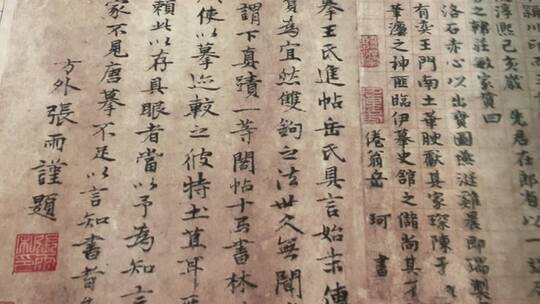 潁川所
之歸莊敏家寶曰
淳熙己亥歲 先君在郎省以一
洛石赤心以出寶圖
有奕王門南土華腴獻其家琛陳于
筆瀋之神匪臨伊摹史館之儲尚其
倦翁岳 珂 書
摹王氏進帖岳氏具言始末傳
賢為宜然雙鉤之法世久無聞
謂下真蹟一等閣帖十五書林
使以摹迹較之彼特土苴耳
賴此以存具眼者當以予為知言
家不見唐摹不足以言知書者
方外張雨謹題